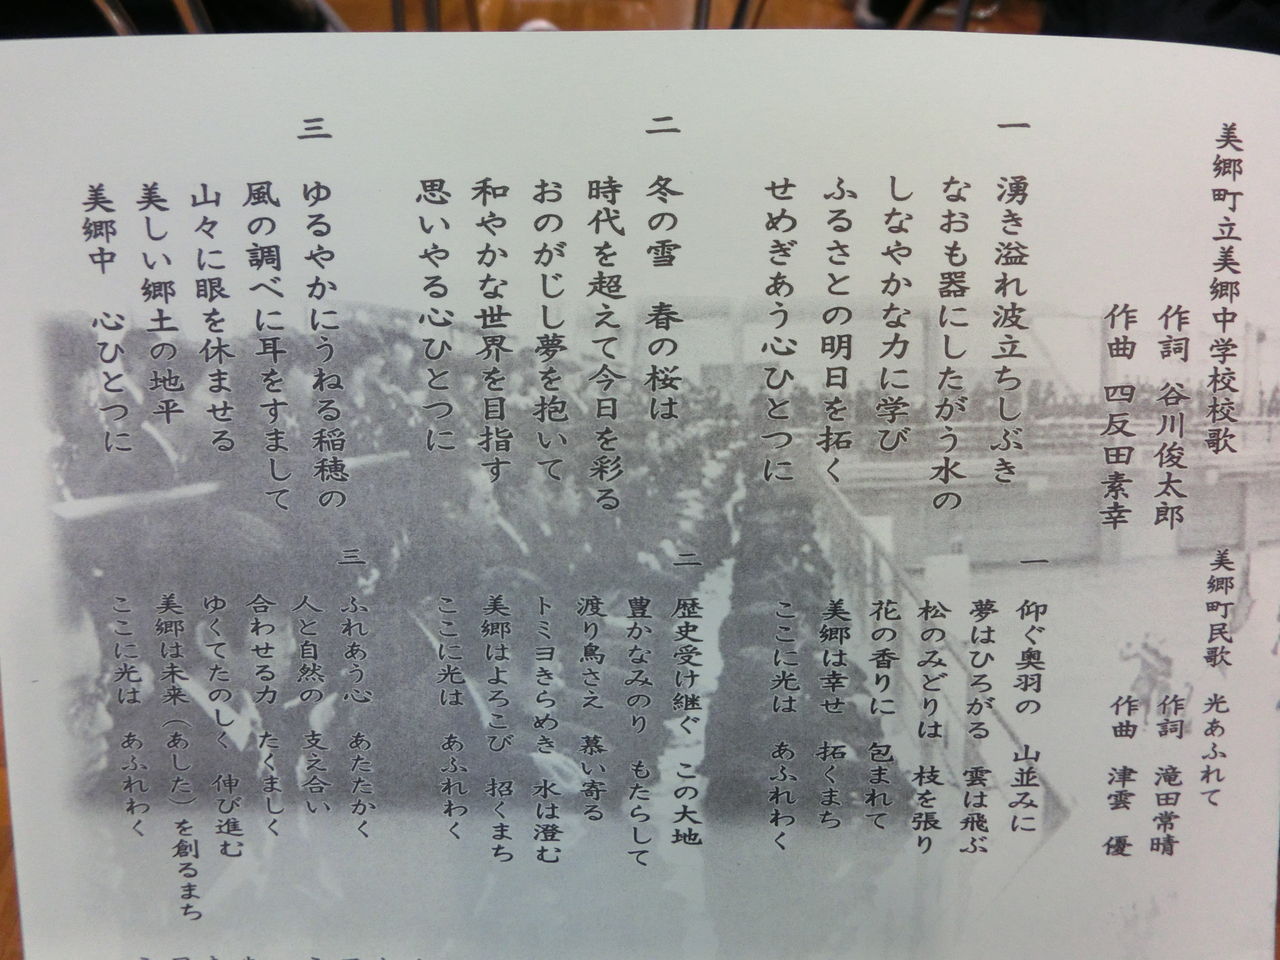 美郷町立美郷中学校校歌
作詞 谷川俊太郎
作曲 四反田素幸
一 湧き溢れ波立ちしぶき
なおも器にしたがう水の
しなやかな力に学び
ふるさとの明日を拓く
せめぎあう心ひとつに
二 冬の雪 春の桜は
時代を超えて今日を彩る
おのがじし夢を抱いて
和やかな世界を目指す
思いやる心ひとつに
三 ゆるやかにうねる稲穂の
風の調べに耳をすまして
山々に眼を休ませる
美しい郷土の地平
美郷中 心ひとつに
美郷町民歌 光あふれて
作詞 滝田常晴
作曲 津雲 優
一 仰ぐ奥羽の 山並みに
夢はひろがる 雲は飛ぶ
松のみどりは 枝を張り
花の香りに 包まれて
美郷は幸せ 拓くまち
ここに光は あふれわく
二 歴史受け継ぐ この大地
豊かなみのり もたらして
渡り鳥さえ 慕い寄る
トミヨきらめき 水は澄む
美郷はよろこび 招くまち
ここに光は あふれわく
三 ふれあう心 あたたかく
人と自然の 支え合い
合わせる力 たくましく
ゆくてたのしく 伸び進む
美郷は未来（あした）を創るまち
ここに光は あふれわく